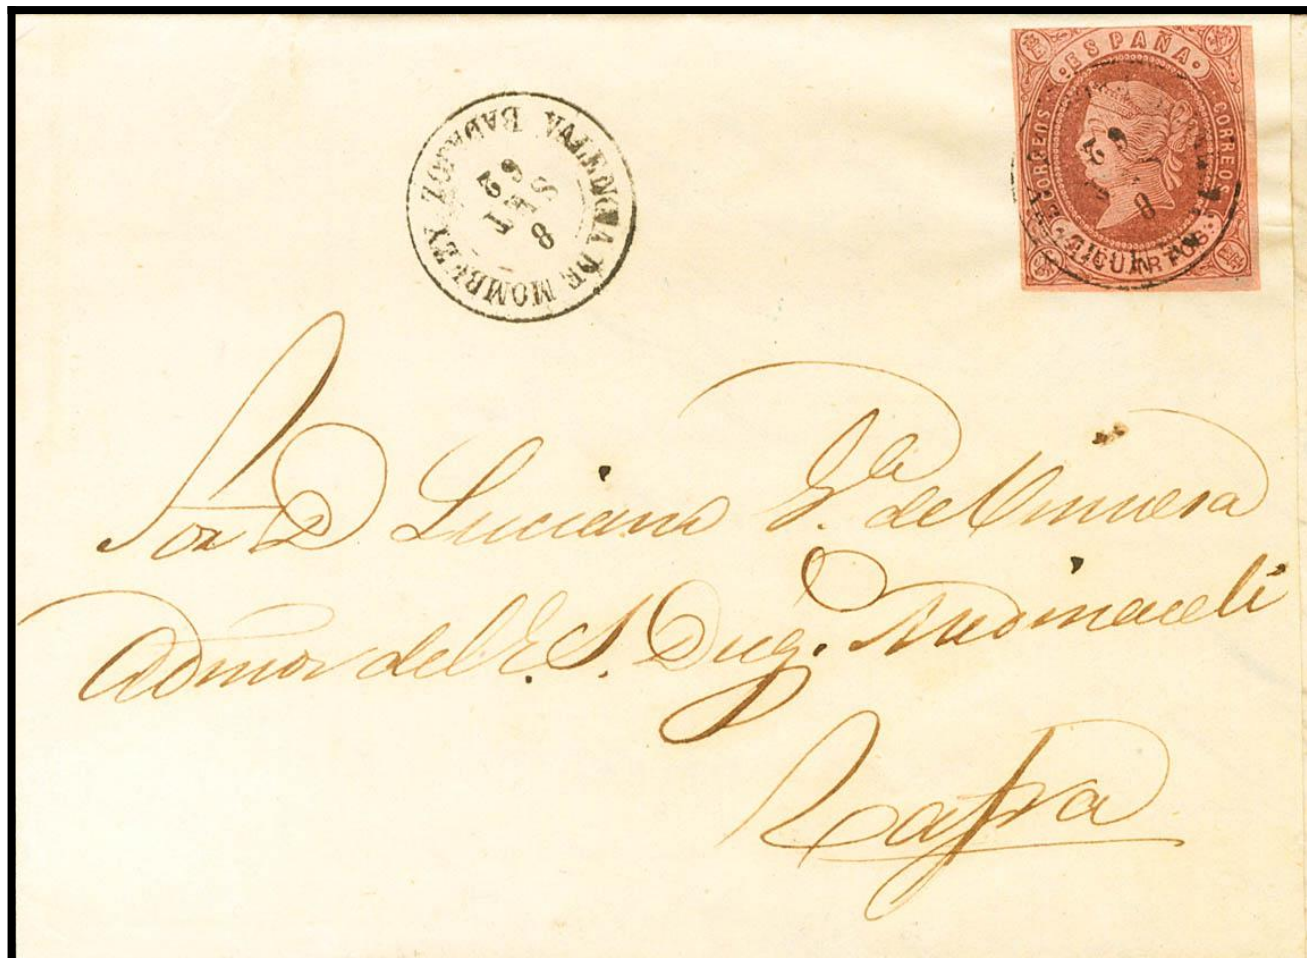 ESPAÑA
CORREOS
CORREOS
CUARTOS
VALENCIA DE MOMBUEY BADAJOZ
8
62
Sor D Luciano G.ª de Vinuesa
Admor del E. S. Duq. Medinaceli
Zafra